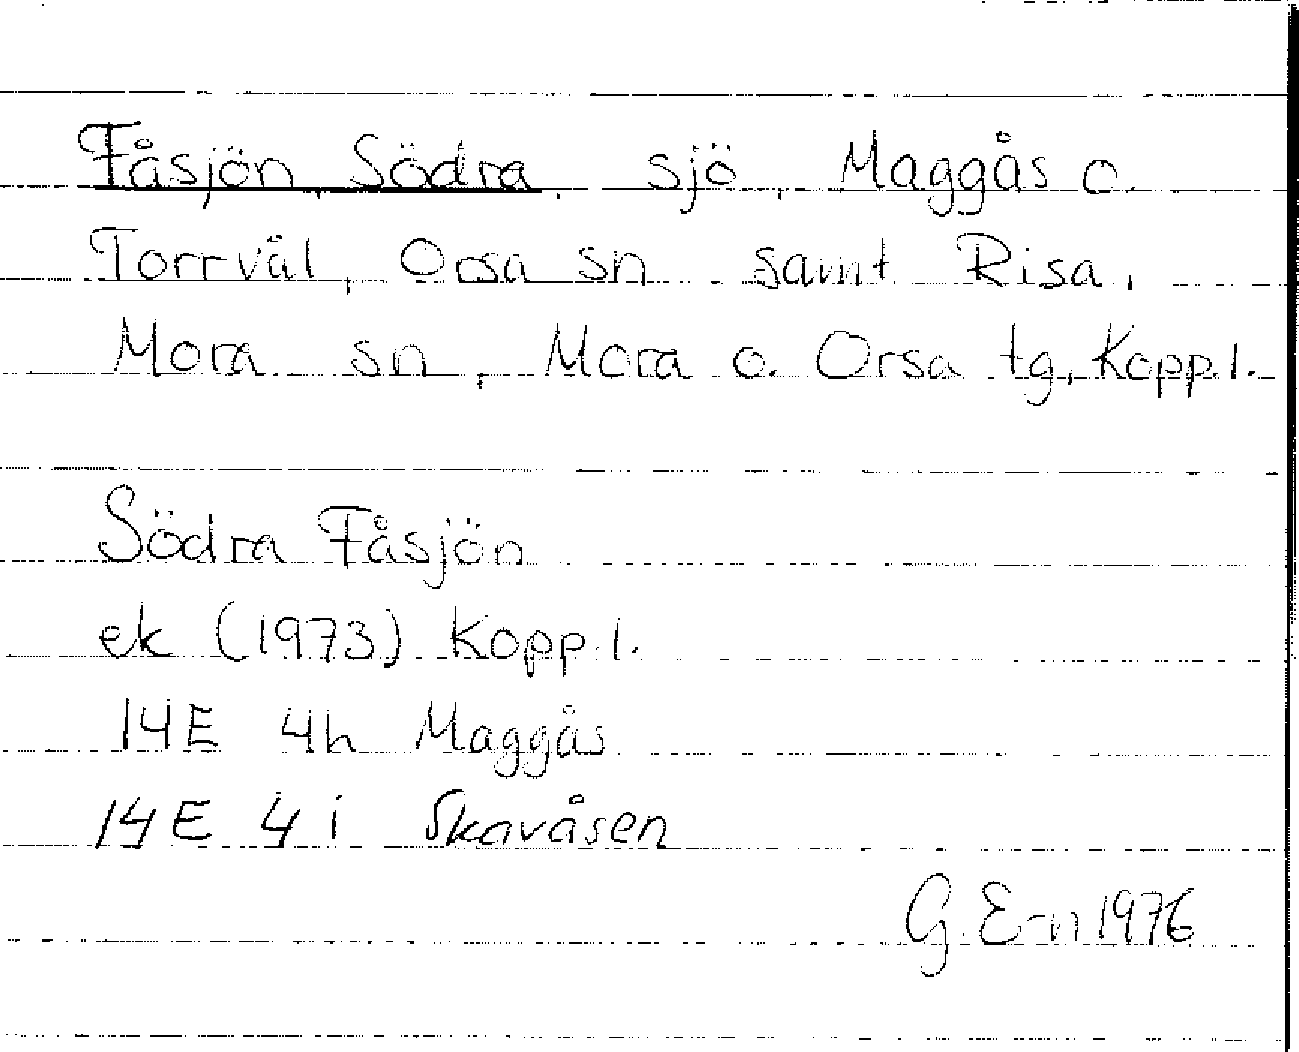 Fåsjön, Södra, sjö, Maggås o.
Torrvål, Orsa sn samt Risa,
Mora sn, Mora o. Orsa tg, Kopp.l.
Södra Fåsjön
ek (1973) Kopp.l.
14E 4h Maggås
14E 4i Skavåsen
G. E-n 1976